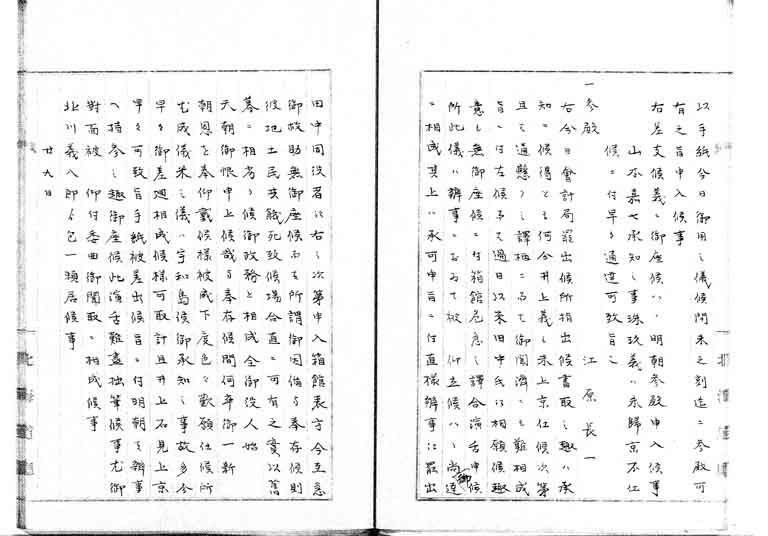 以手紙今日御用之儀候間未之刻迄ニ参殿可
有之旨申入候事
右差支候義ニ御座候ハヽ明朝参殿申入候事
山本嘉七承知之事珠玖義ハ未帰京不仕
候ニ付早々通達可致旨
江原長一
一参殿
右今日會計局罷出候所指出候書取之趣ハ承
知ニ候得とも何分井上義も未上京仕候次第
且て通懸之譯柄ニ而御聞済ニも難相成
旨ニ付左候而て過日以来田中氏江相願候趣
意も無御座候ニ付箱館危急之譯合演舌申候
所此儀ハ辨事ニ而被 仰立候ハヽ尚速
御
ニ相成其上ハ承可申旨ニ付直様辨事江罷出
田中国之沼江右之次第申入箱館表方今至急
御救助無御座候而も所謂御因備与奉存候則
彼地土民共餓死致候場合直ニ可有之実以舊
幕ニ相劣り候御政務と相成全御役人始
天朝御恨申上候哉与奉存候間何卒御一新
朝恩を奉仰戴候様被成下度色々歎願仕候所
尤成儀米之儀ハ宇和島候御承知之事故多分
早々御差廻相成候様可取計且井上石見上京
早々可致旨手紙被差出候旨ニ付明朝も辨事
へ持参之趣御座候此演舌難盡拙筆候事尤御
對面被 仰付悉曲御聞取ニ相成候事
北川義八郎ゟ包一預居候事
廿九日